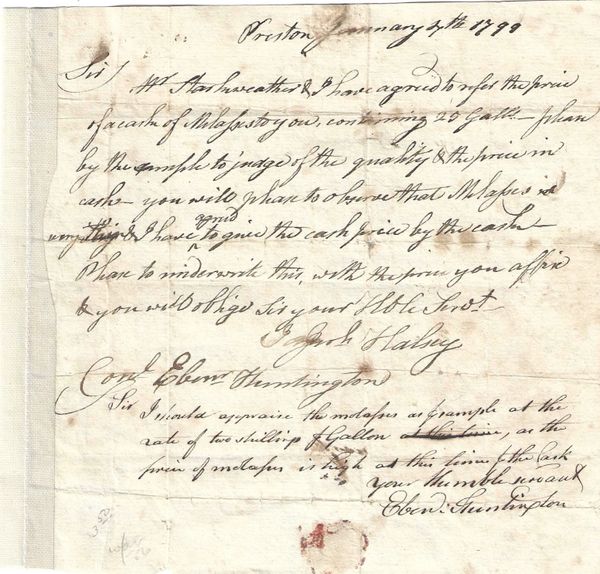 Preston January 4th 1799
Sir/
Mr Starkweather & I have agreed to refer the price
of a cask of Melasses to you, containing 25 Galls. – please
by the sample to judge of the quality & the price in
cash – you will please to observe that Melasses is
agreed
very & I have to give the cash price by the cask
Please to underwrite this, with the price you affix
& you will oblige Sir your Hble Servt
Halsey
Ebenr Huntington
Sir
I should appraise the molasses as pr sample at the
rate of two shillings pr Gallon at this time, as the
price of molasses is high at this time pr the Cask
Your Humble servant
Eben: Huntington